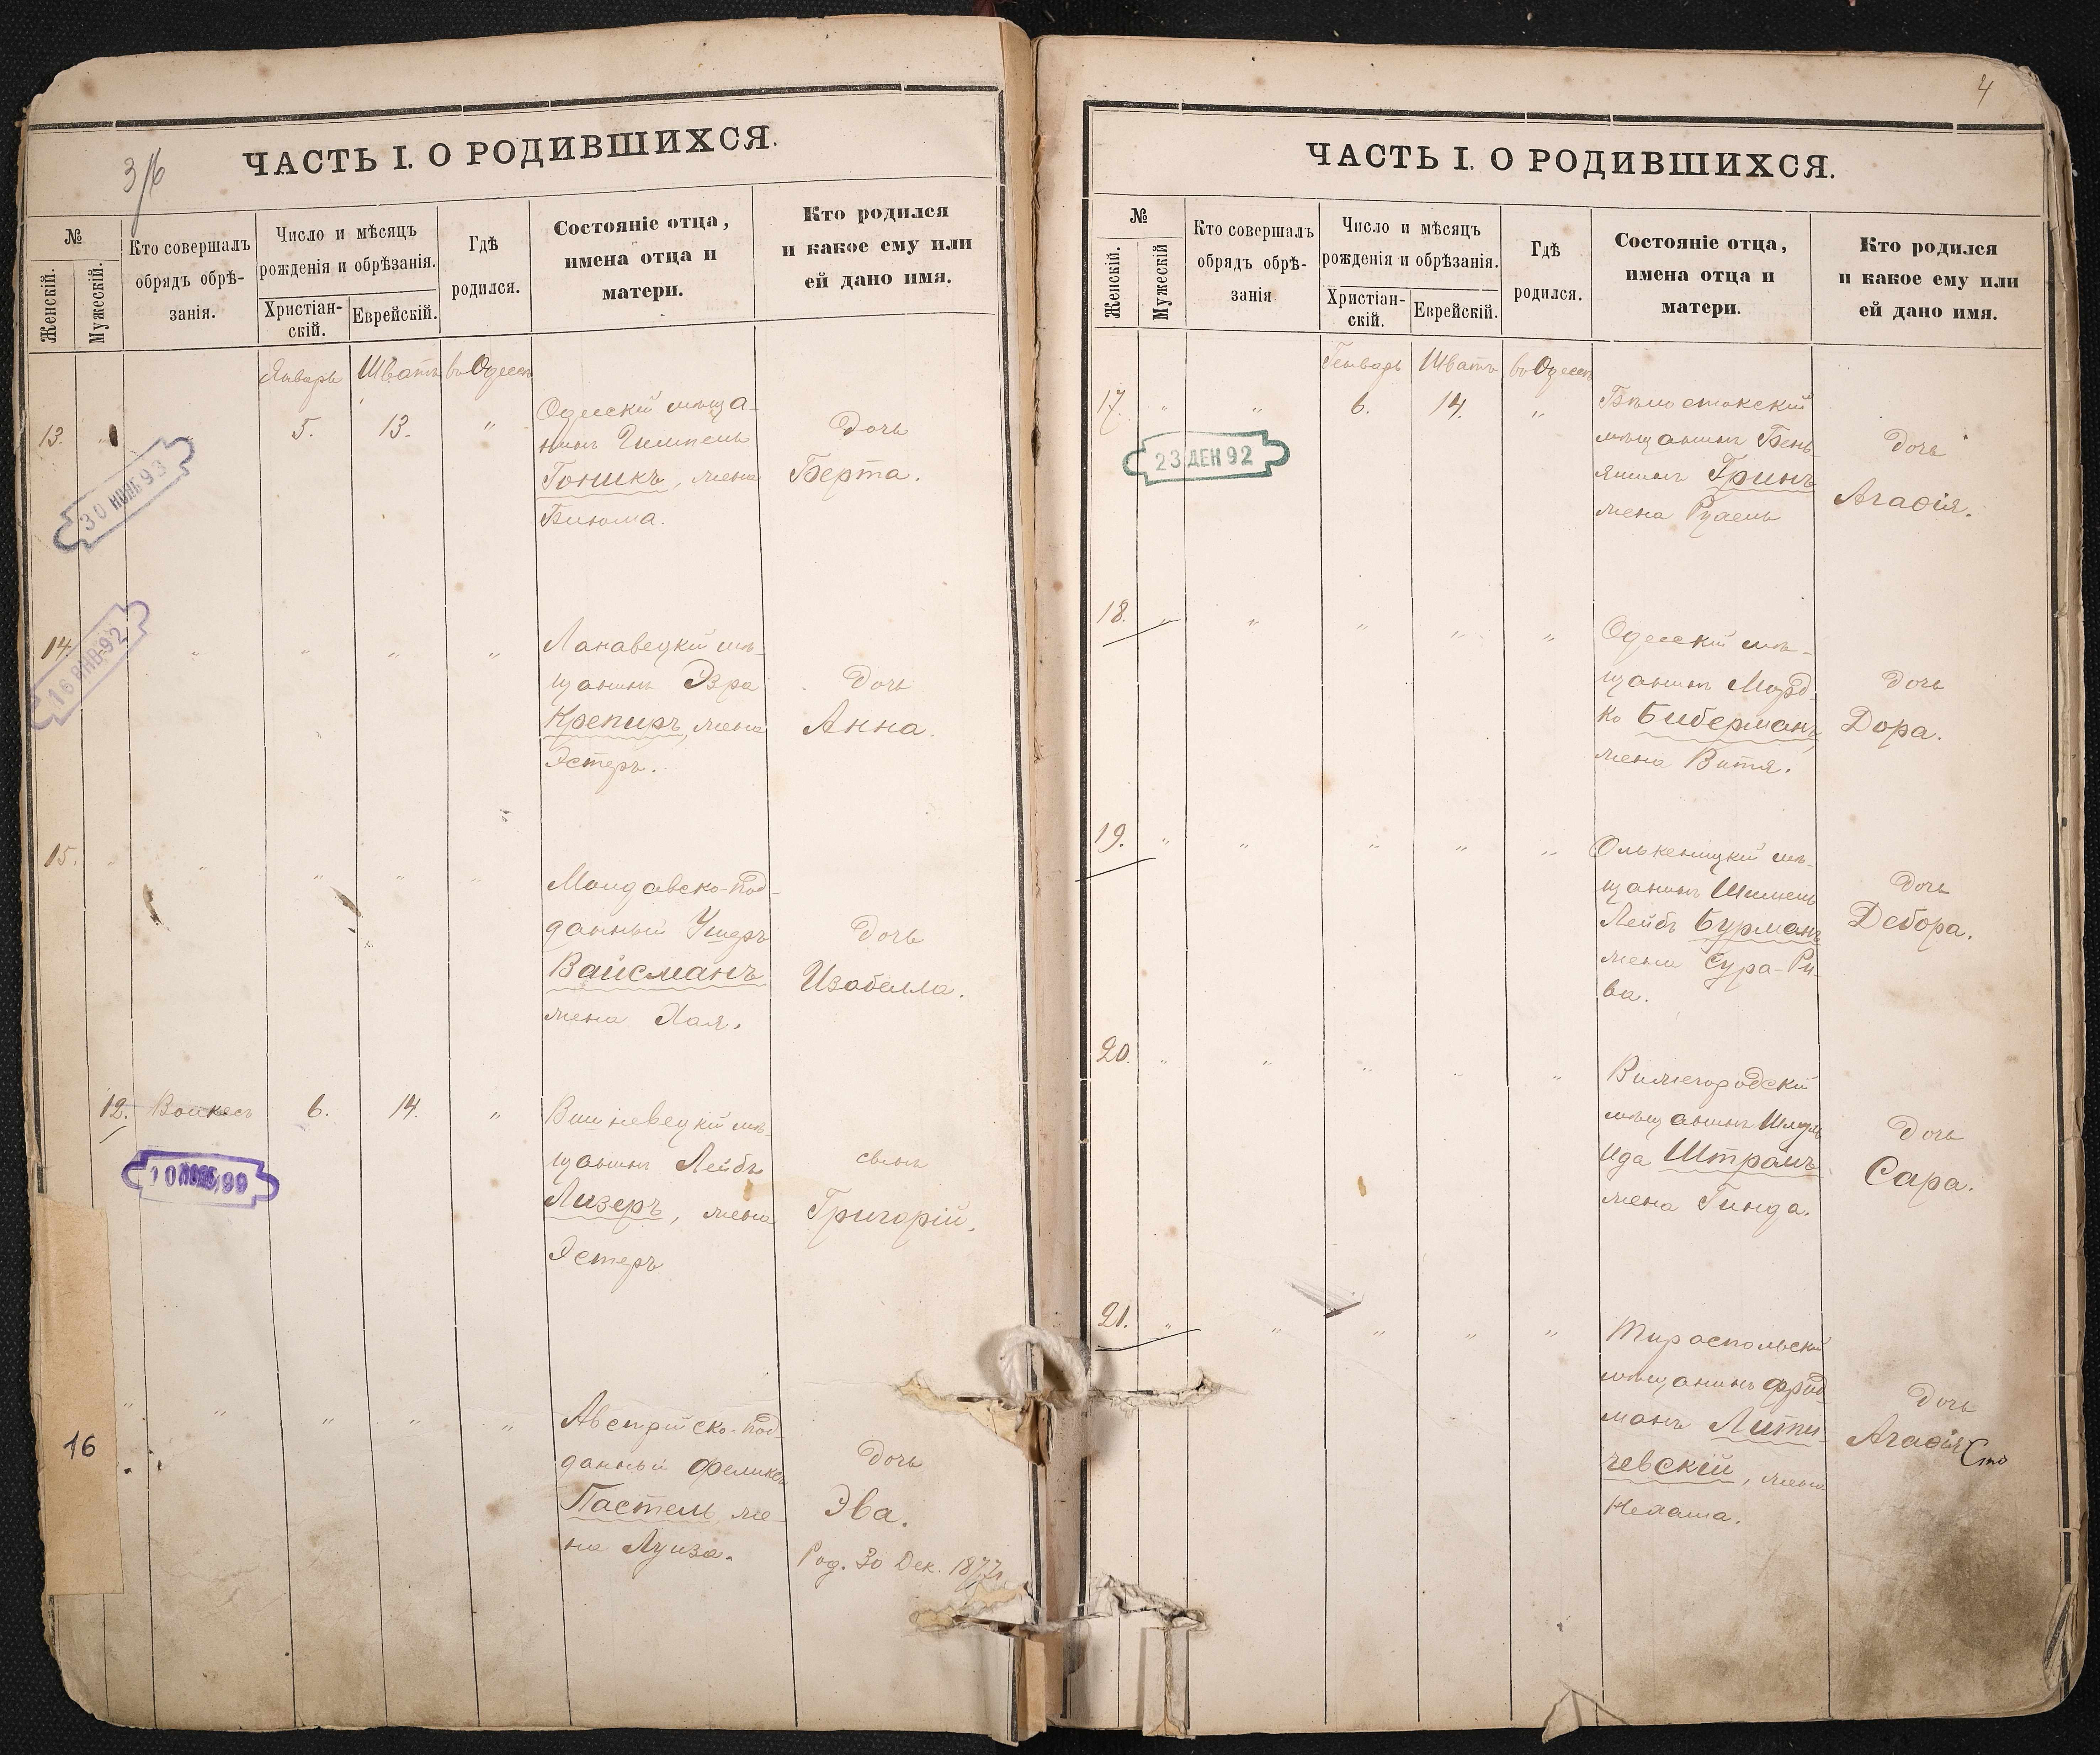 3/6
ЧАСТЬ I. О РОДИВШИХСЯ.
№
Женскій.
Мужескій.
Кто совершалъ
обрядъ обрѣ-
занія.
Число и мѣсяцъ
рожденія и обрѣзанія.
Христіан-
скій.
Еврейскій.
Гдѣ
родился.
Состояніе отца,
имена отца и
матери.
Кто родился
и какое ему или
ей дано имя.
Январь Шватъ въ Одессѣ
13. " " 5. 13. "
Одесскій мѣща-
нинъ
Гоникъ, жена
Бинюма.
Дочь
Берта.
30 НОЯБ 93
14. " " " "
Ланавецкій мѣ-
щанинъ Эзра
Крепиръ, жена
Эстеръ.
Дочь
Анна.
16 ЯНВ 92
15. " " " " "
Молдавско-под-
данный Ушеръ
Вайсманъ
жена Хая.
Дочь
Изабелла.
12. 6. 14. "
Вишневецкій мѣ-
щанинъ Лейбъ
Лизеръ, жена
Эстеръ
сынъ
Григорій.
10 99
16 " " " " "
Австрійско-под-
данный Феликсъ
Пастели, же-
на Луиза.
Дочь
Эва.
Род. 30 Дек. 1877 г.
4
ЧАСТЬ I. О РОДИВШИХСЯ.
№
Женскій.
Мужескій
Кто совершалъ
обрядъ обрѣ-
занія
Число и мѣсяцъ
рожденія и обрѣзанія.
Христіан-
скій.
Еврейскій.
Гдѣ
родился.
Состояніе отца,
имена отца и
матери.
Кто родился
и какое ему или
ей дано имя.
Генварь Шватъ въ Одессѣ
17. " " 6. 14. "
Бѣлостокскій
мѣщанинъ Бень
яминъ Гринъ
жена Рухель
Дочь
Агаѳія.
23 ДЕК 92
18. " " " " "
Одесскій мѣ-
щанинъ Морд-
ко Биберманъ,
жена Витя.
Дочь
Дора.
19. " " " " "
Олькеницкій мѣ-
щанинъ
Лейбъ Бурманъ
жена Сура-Ри-
ва.
Дочь
Дебора.
20. " " " " "
мѣщанинъ Шмуль
Ида Штромъ
жена Гинда.
Дочь
Сара.
21. " " " " "
Тираспольскій
мѣщанинъ Фрид-
манъ Лити-
чевскій, жена
Нехама.
Дочь
Агаѳія